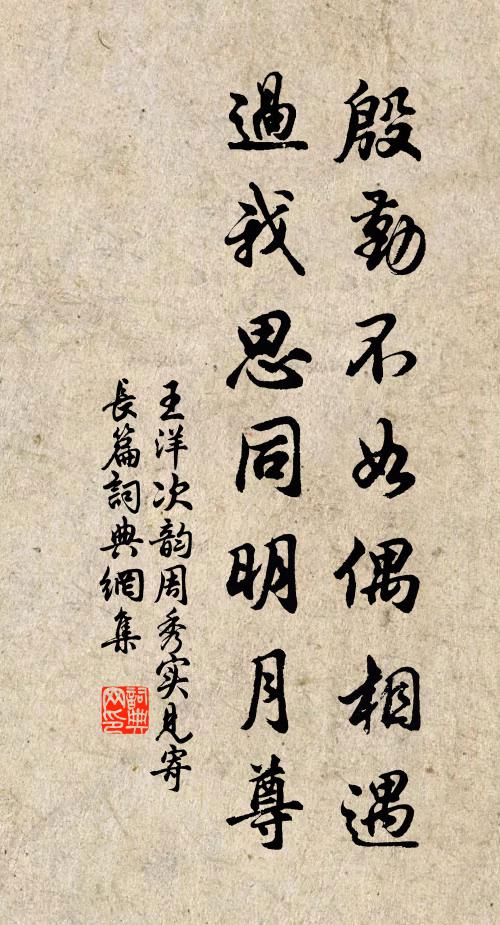 殷勤不如偶相遇
過我思同明月尊
王洋次韵周秀实见寄
長篇詞典網集
詞典网印